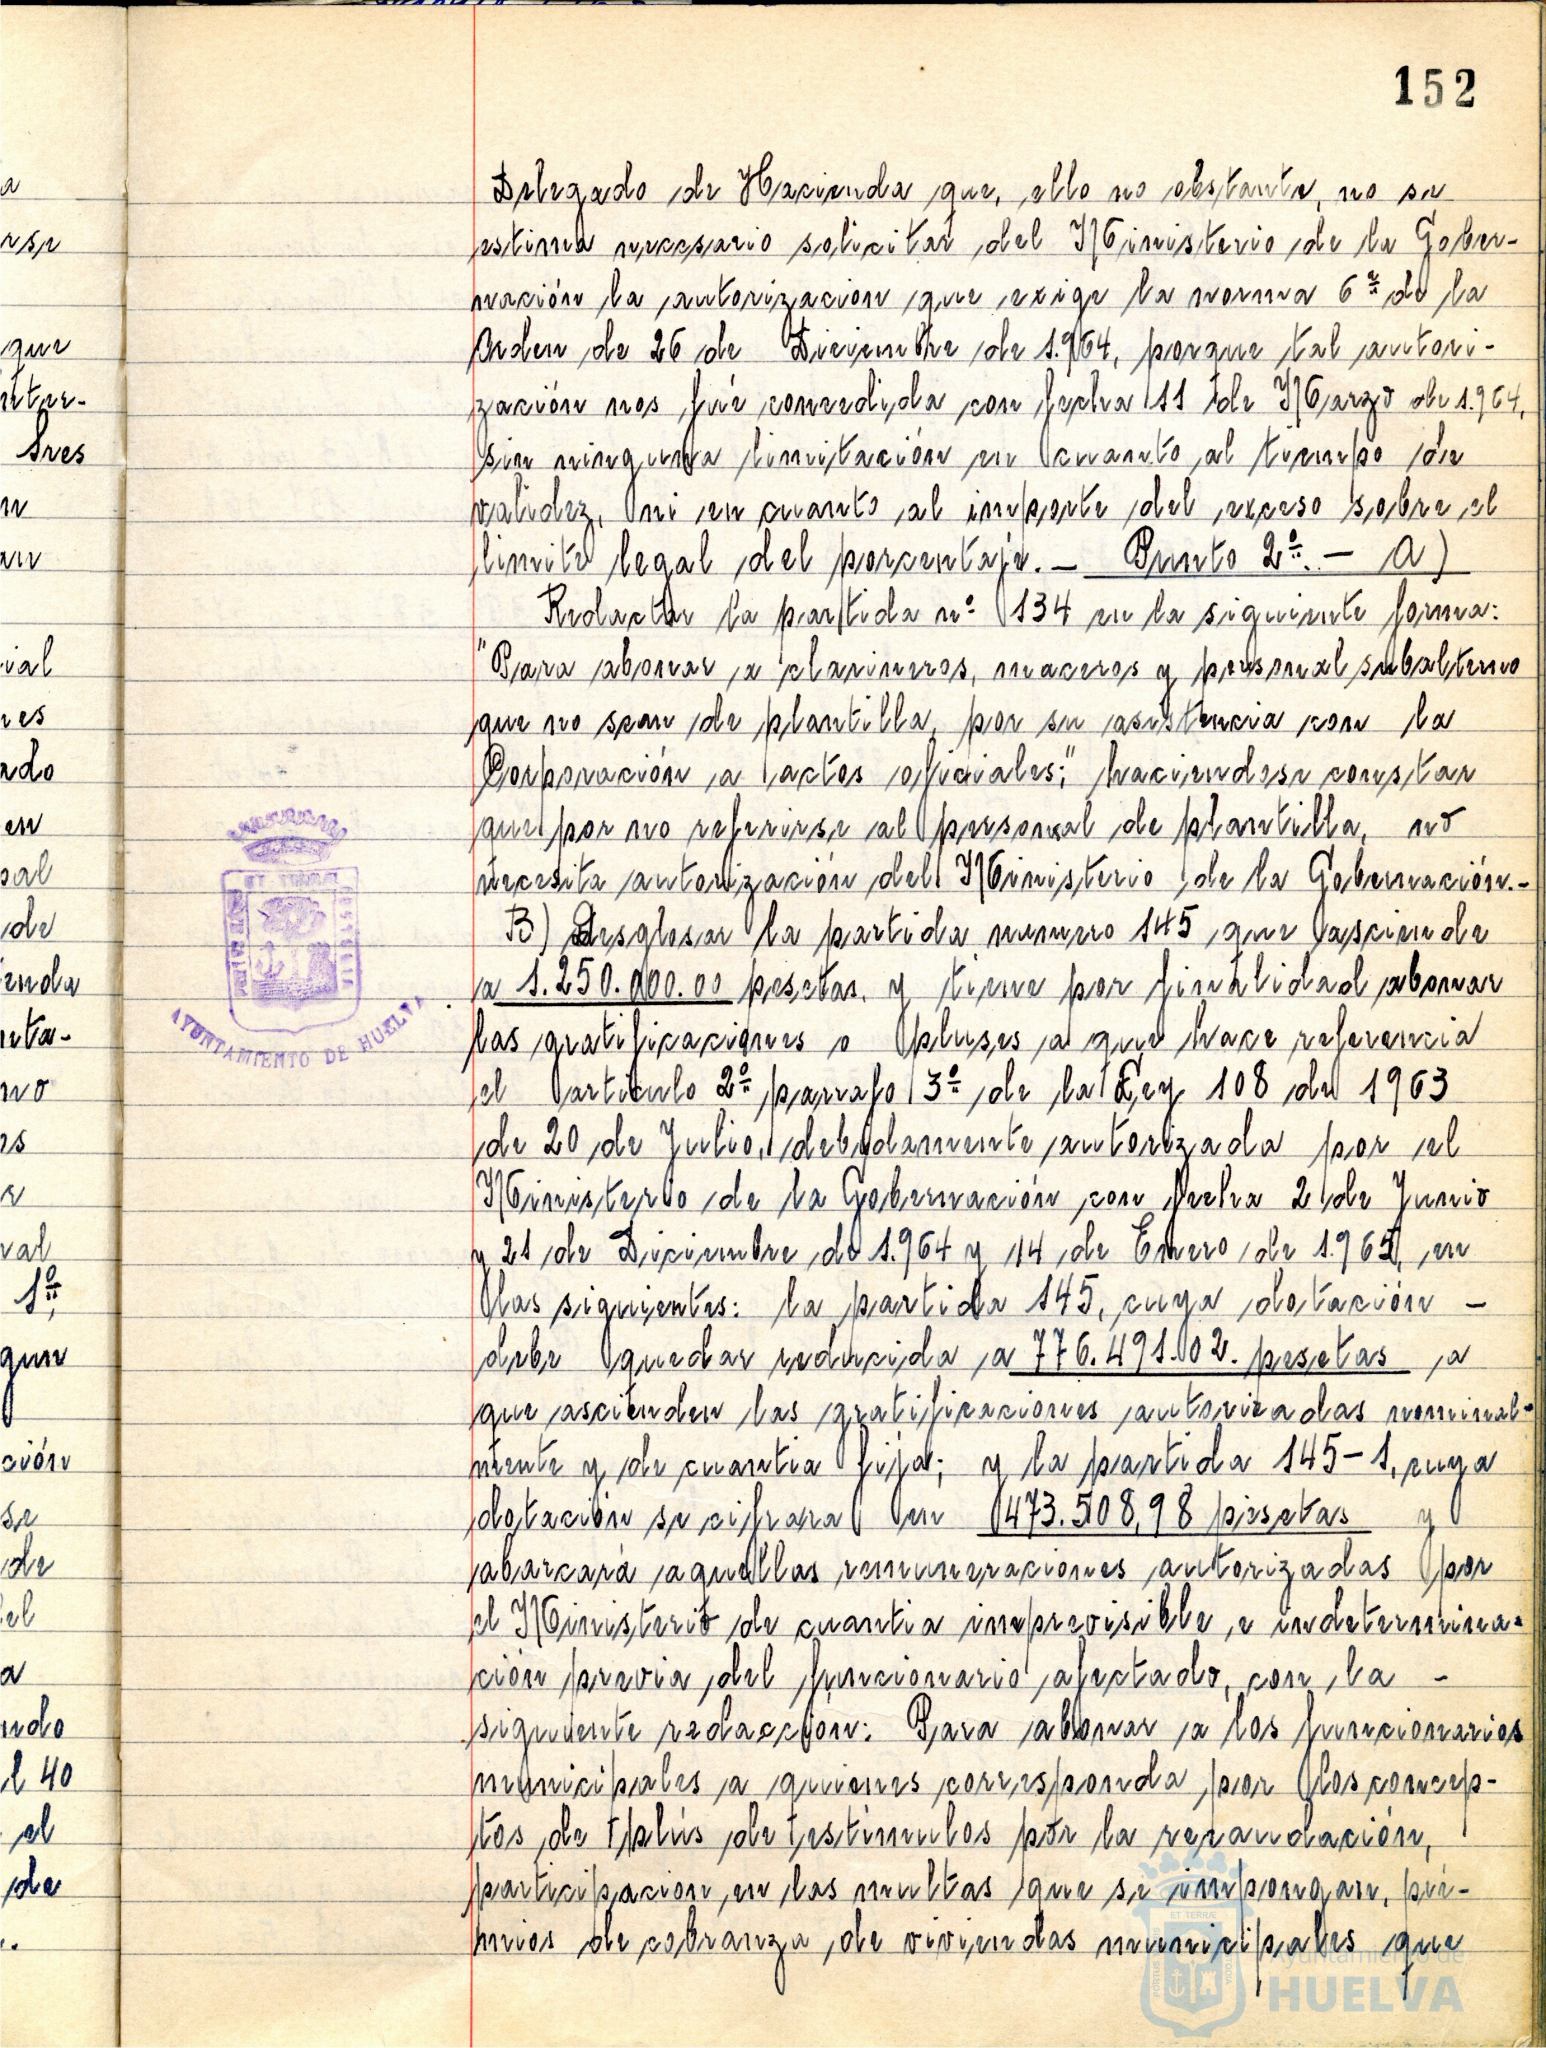 152
Delegado de Hacienda que, ello no obstante, no se
estima necesario solicitar del Ministerio de la Gober-
nación la autorizacion que exige la norma 6ª de la
Orden de 26 de Diciembre de 1.964, porque tal autori-
zación nos fué concedida con fecha 11 de Marzo de 1.964,
sin ninguna limitación en cuanto al tiempo de
validez, ni en cuanto al importe del exceso sobre el
limite legal del porcentaje. — Punto 2º. — A)
Redactar la partida nº 134 en la siguiente forma:
"Para abonar a clarineros, maceros y personal subalterno
que no sean de plantilla, por su asistencia con la
Corporación a actos oficiales;" haciendose constar
que por no referirse al personal de plantilla, no
necesita autorización del Ministerio de la Gobernación.-
B) Desglosar la partida numero 145 que asciende
a 1.250.000.00 pesetas, y tiene por finalidad abonar
las gratificaciones o pluses a que hace referencia
el articulo 2º parrafo 3º de la Ley 108 de 1963
de 20 de Julio, debidamente autorizada por el
Ministerio de la Gobernación con fecha 2 de Junio
y 21 de Diciembre de 1.964 y 14 de Enero de 1.965, en
las siguientes: la partida 145, cuya dotación —
debe quedar reducida a 776.491.02. pesetas a
que ascienden las gratificaciones autorizadas nominal-
mente y de cuantia fija; y la partida 145-1, cuya
dotación se cifrara en 473.508,98 pesetas y
abarcará aquellas remuneraciones autorizadas por
el Ministerio de cuantia imprevisible, e indetermina-
ción previa del funcionario afectado, con la -
siguiente redacción: Para abonar a los funcionarios
municipales a quienes corresponda, por los concep-
tos de plús de estímulos por la recaudación,
participacion en las multas que se impongan, pre-
mios de cobranza de viviendas municipales que
AYUNTAMIENTO DE HUELVA
ET TERRÆ
Ayuntamiento de
HUELVA
a
rse
que
Tres
m
an
ial
res
ado
en
pal
de
enda
nta-
no
rs
r
val
1º,
que
ción
se
de
el
a
ndo
l 40
el
de